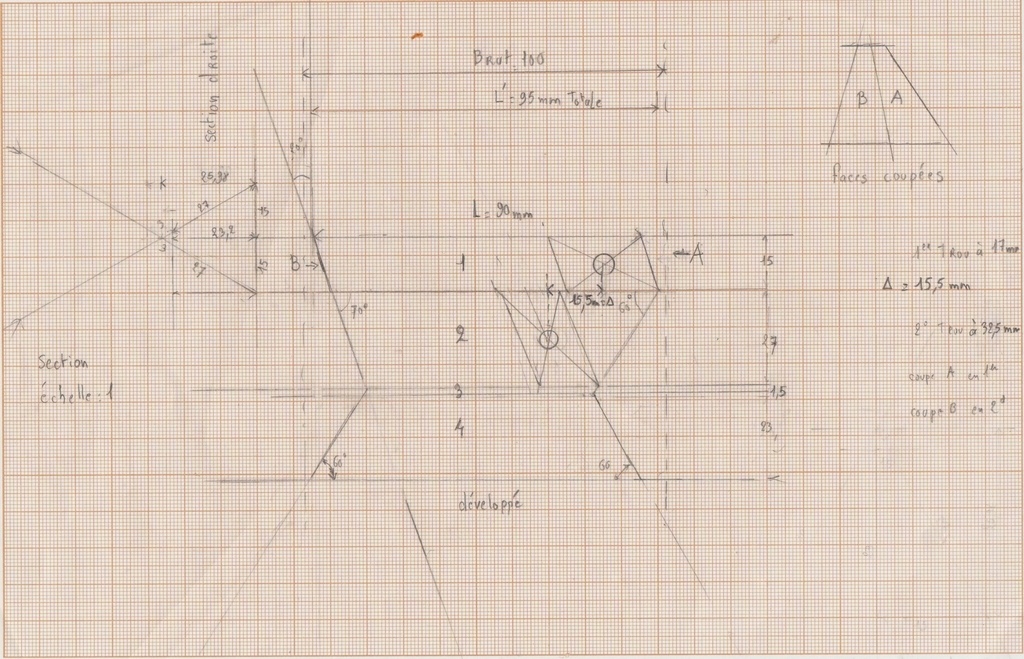 section droite
Brut 100
L' = 95 mm Totale
B
A
faces coupées
25,98
27
15
23,2
3
3
27
15
L = 90 mm
B
A
1
15
15,5m=Δ
60°
70°
2
27
1er Trou à 17mm
Δ = 15,5 mm
2e Trou à 32,5 mm
coupe A en 1er
coupe B en 2e
section
échelle: 1
3
1,5
4
23,
60°
60
développé